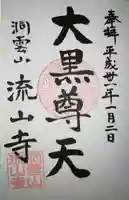 奉拝 平成廿一年一月二日
大黒尊天
洞雲山
流山寺